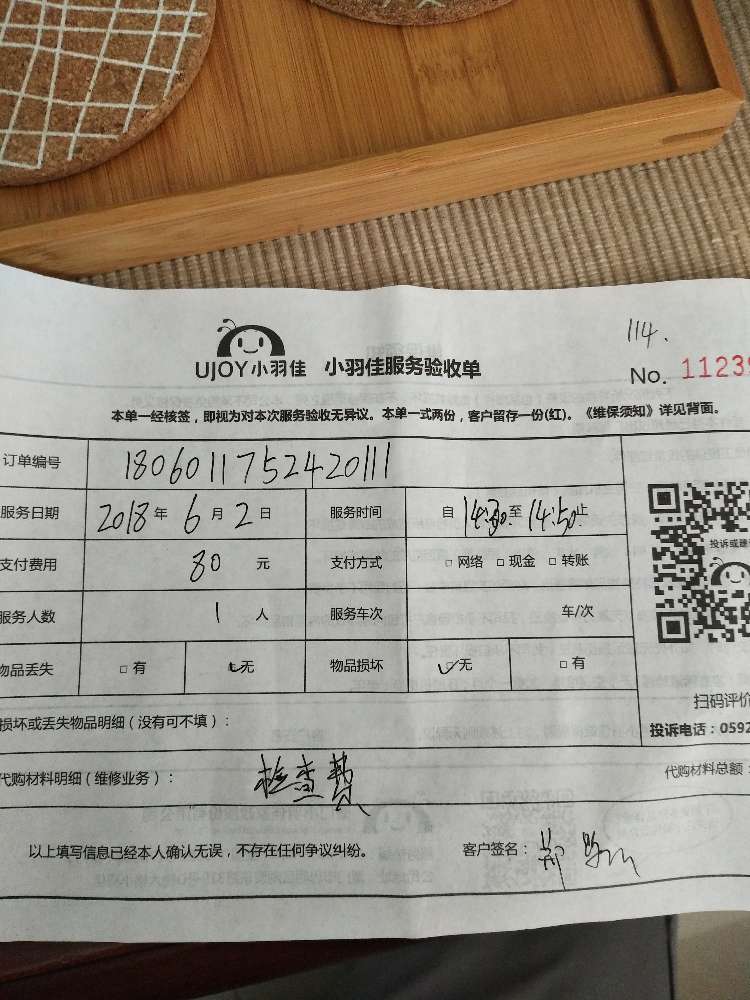 114.
UJOY小羽佳 小羽佳服务验收单
No. 11239
本单一经核签，即视为对本次服务验收无异议。本单一式两份，客户留存一份(红)。《维保须知》详见背面。
订单编号 180601175242011
服务日期 2018年 6月 2日 服务时间 自 14:30 至 14:50止
投诉或建
支付费用 80 元 支付方式 □网络 □现金 □转账
服务人数 1 人 服务车次 车/次
物品丢失 □有 ✓无 物品损坏 ✓无 □有
扫码评价
损坏或丢失物品明细（没有可不填）：
投诉电话：0592
代购材料明细（维修业务）： 检查费
代购材料总额：
以上填写信息已经本人确认无误，不存在任何争议纠纷。 客户签名：